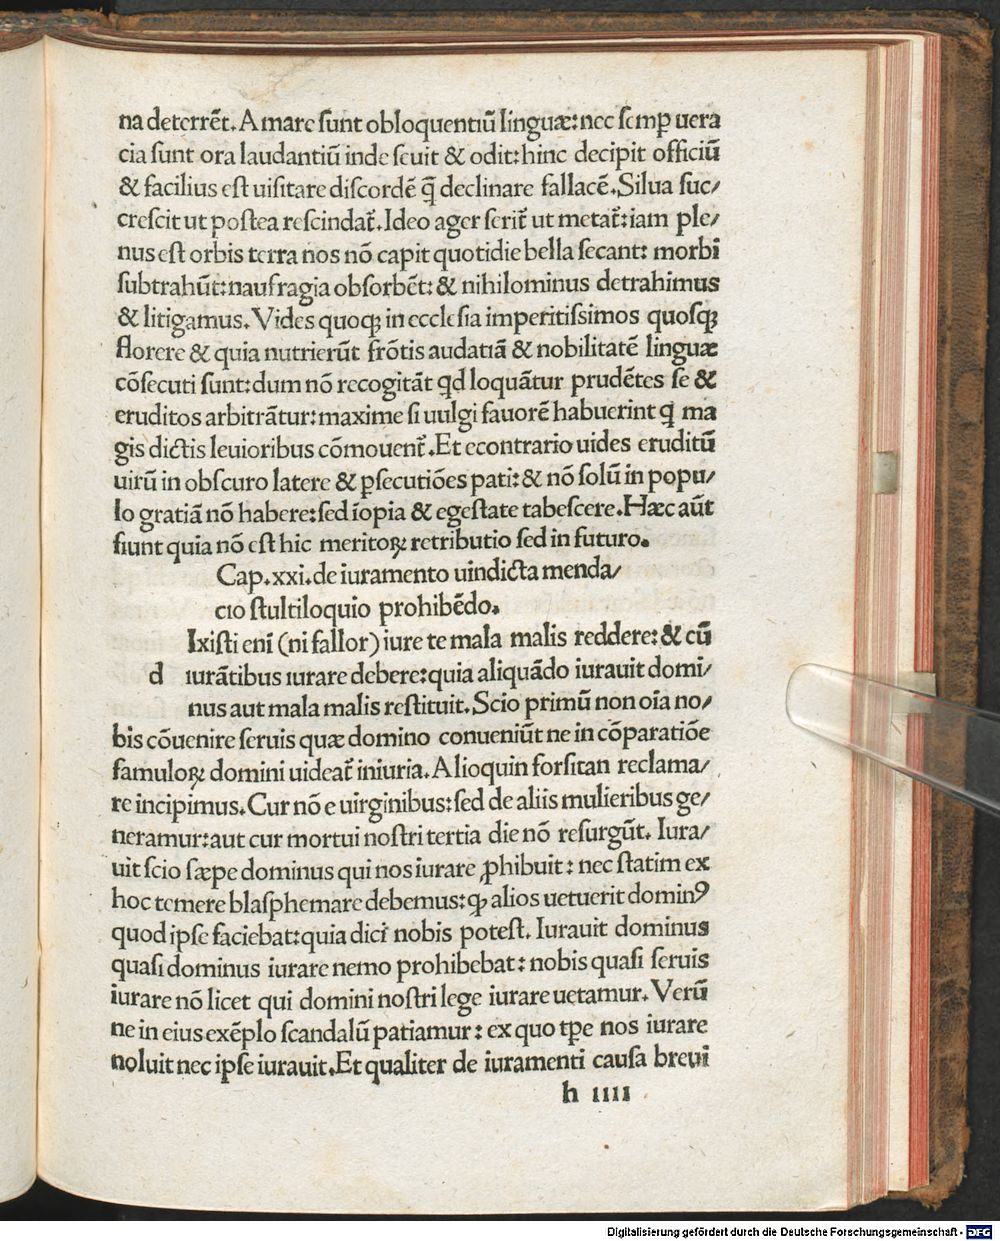 na deterrēt. Amare sunt obloquentiū linguæ: nec semꝑ uera
cia sunt ora laudantiū inde seuit & odit: hinc decipit officiū
& facilius est uisitare discordē q̄ declinare fallacē. Silua suc/
crescit ut postea rescindat᷑. Ideo ager serit᷑ ut metat᷑: iam ple/
nus est orbis terra nos nō capit quotidie bella secant: morbi
subtrahūt: naufragia obsorbēt: & nihilominus detrahimus
& litigamus. Vides quoqꝫ in ecclesia imperitissimos quosqꝫ
florere & quia nutrierūt frōtis audatiā & nobilitatē linguæ
cōsecuti sunt: dum nō recogitāt qd loquātur prudētes se &
eruditos arbitrātur: maxime si uulgi fauorē habuerint q̄ ma
gis dictis leuioribus cōmouent᷑. Et econtrario uides eruditū
uirū in obscuro latere & ꝑsecutiōes pati: & nō solū in popu/
lo gratiā nō habere: sed īopia & egestate tabescere. Hæc aūt
fiunt quia nō est hic meritoꝝ retributio sed in futuro.
Cap. xxi. de iuramento uindicta menda/
cio stultiloquio prohibēdo.
Ixisti eni (ni fallor) iure te mala malis reddere: & cū
d iurātibus iurare debere: quia aliquādo iurauit domi/
nus aut mala malis restituit. Scio primū non oīa no/
bis cōuenire seruis quæ domino conueniūt ne in cōparatiōe
famuloꝝ domini uideat᷑ iniuria. Alioquin forsitan reclama/
re incipimus. Cur nō e uirginibus: sed de aliis mulieribus ge/
neramur: aut cur mortui nostri tertia die nō resurgūt. Iura/
uit scio sæpe dominus qui nos iurare ꝓhibuit: nec statim ex
hoc temere blasphemare debemus: ꝙ alios uetuerit dominꝰ
quod ipse faciebat: quia dici nobis potest. Iurauit dominus
quasi dominus iurare nemo prohibebat: nobis quasi seruis
iurare nō licet qui domini nostri lege iurare uetamur. Verū
ne in eius exēplo scandalū patiamur: ex quo tꝑe nos iurare
noluit nec ipse iurauit. Et qualiter de iuramenti causa breui
h iiii
Digitalisierung gefördert durch die Deutsche Forschungsgemeinschaft - DFG